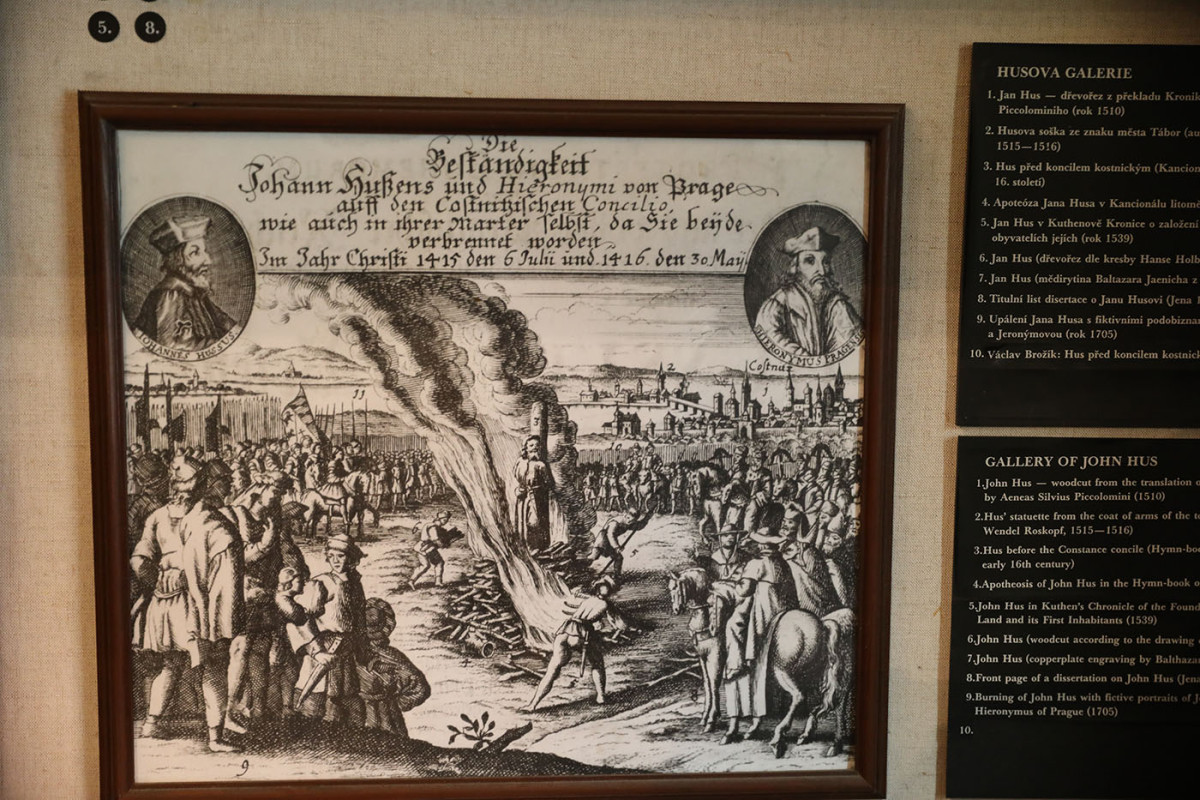 5. 8.
Die
Beständigkeit
Johann Hußens und Hieronymi von Prage
auff den Costnitzischen Concilio,
wie auch in ihrer Marter selbst, da Sie beyde
verbrennet worden
Im Jahr Christi 1415 den 6 Julii und 1416. den 30 Maij
JOHANNES HUSSUS
HIERONYMUS PRAGENSIS
Costnitz
2
1
11
4
9
HUSOVA GALERIE
1. Jan Hus — dřevořez z překladu Kronik
Piccolominiho (rok 1510)
2. Husova soška ze znaku města Tábor (au
1515—1516)
3. Hus před koncilem kostnickým (Kancion
16. století)
4. Apoteóza Jana Husa v Kancionálu litomě
5. Jan Hus v Kuthenově Kronice o založení
obyvatelích jejích (rok 1539)
6. Jan Hus (dřevořez dle kresby Hanse Holb
7. Jan Hus (mědirytina Baltazara Jaenicha z
8. Titulní list disertace o Janu Husovi (Jena
9. Upálení Jana Husa s fiktivními podobizna
a Jeronýmovou (rok 1705)
10. Václav Brožík: Hus před koncilem kostnick
GALLERY OF JOHN HUS
1.John Hus — woodcut from the translation o
by Aeneas Silvius Piccolomini (1510)
2.Hus' statuette from the coat of arms of the t
Wendel Roskopf, 1515—1516)
3.Hus before the Constance concile (Hymn-boo
early 16th century)
4.Apotheosis of John Hus in the Hymn-book o
5.John Hus in Kuthen's Chronicle of the Found
Land and its First Inhabitants (1539)
6.John Hus (woodcut according to the drawing
7.John Hus (copperplate engraving by Balthaza
8.Front page of a dissertation on John Hus (Jena
9.Burning of John Hus with fictive portraits of J
Hieronymus of Prague (1705)
10.